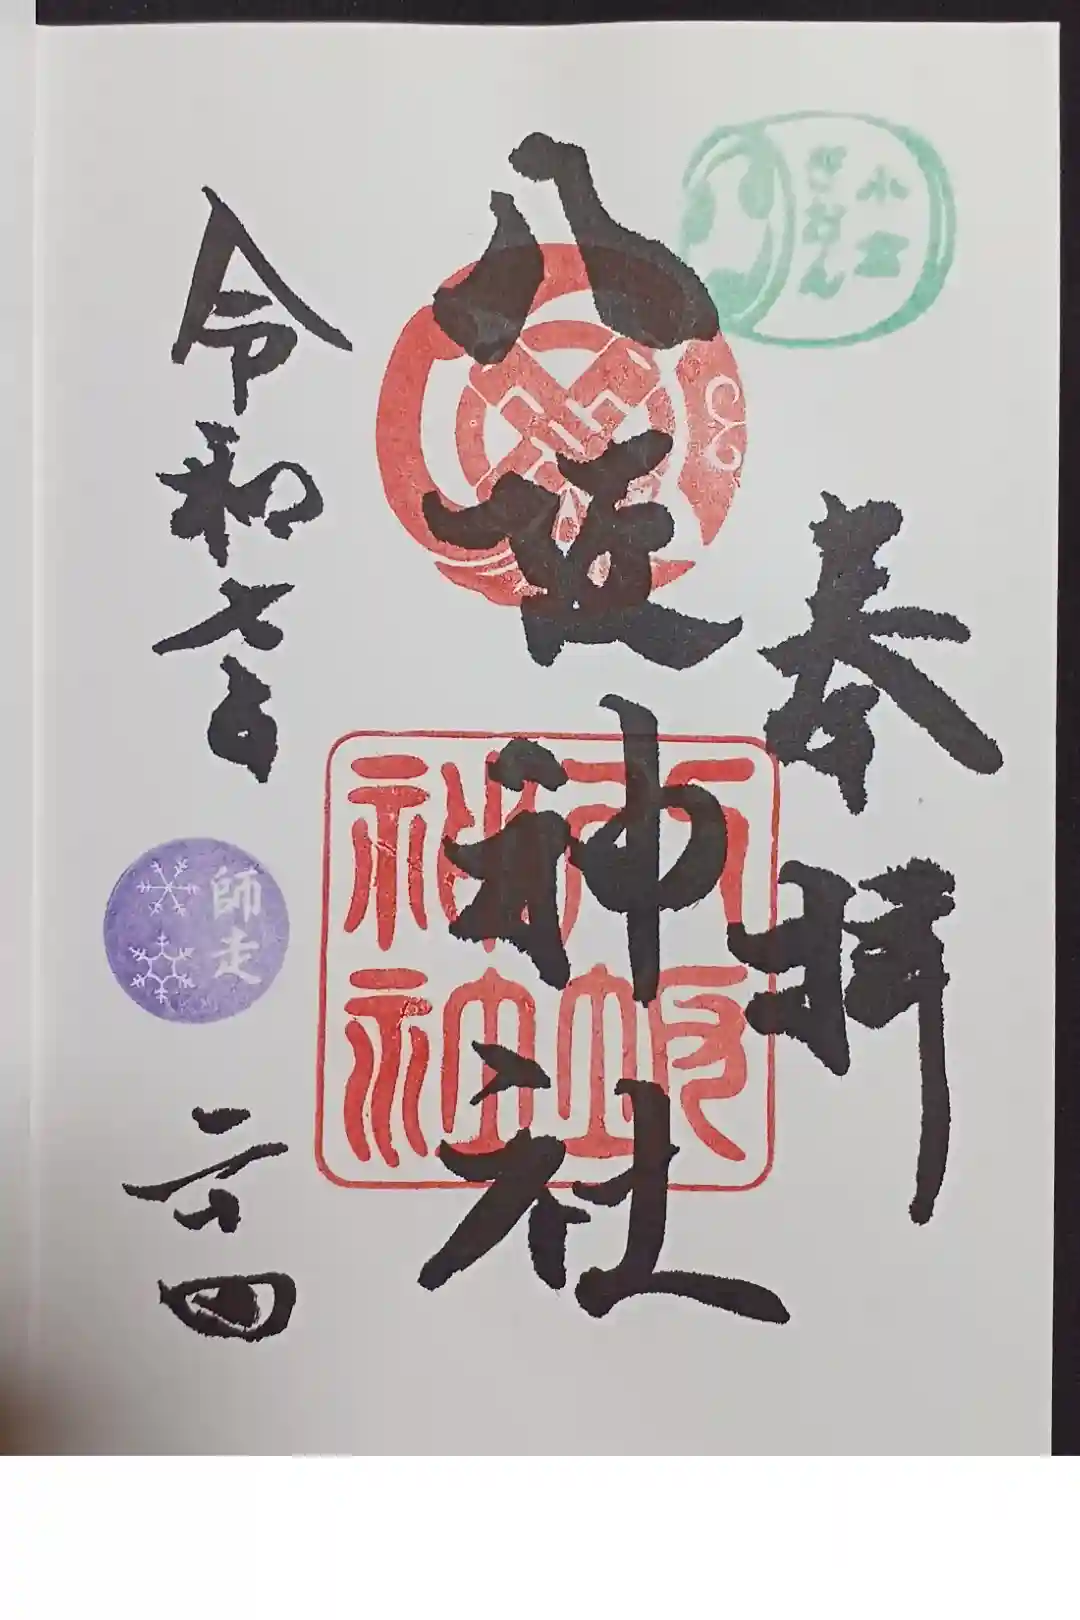 小倉
ぎおん
奉拝
八坂神社
八坂
神社
令和七年
師走